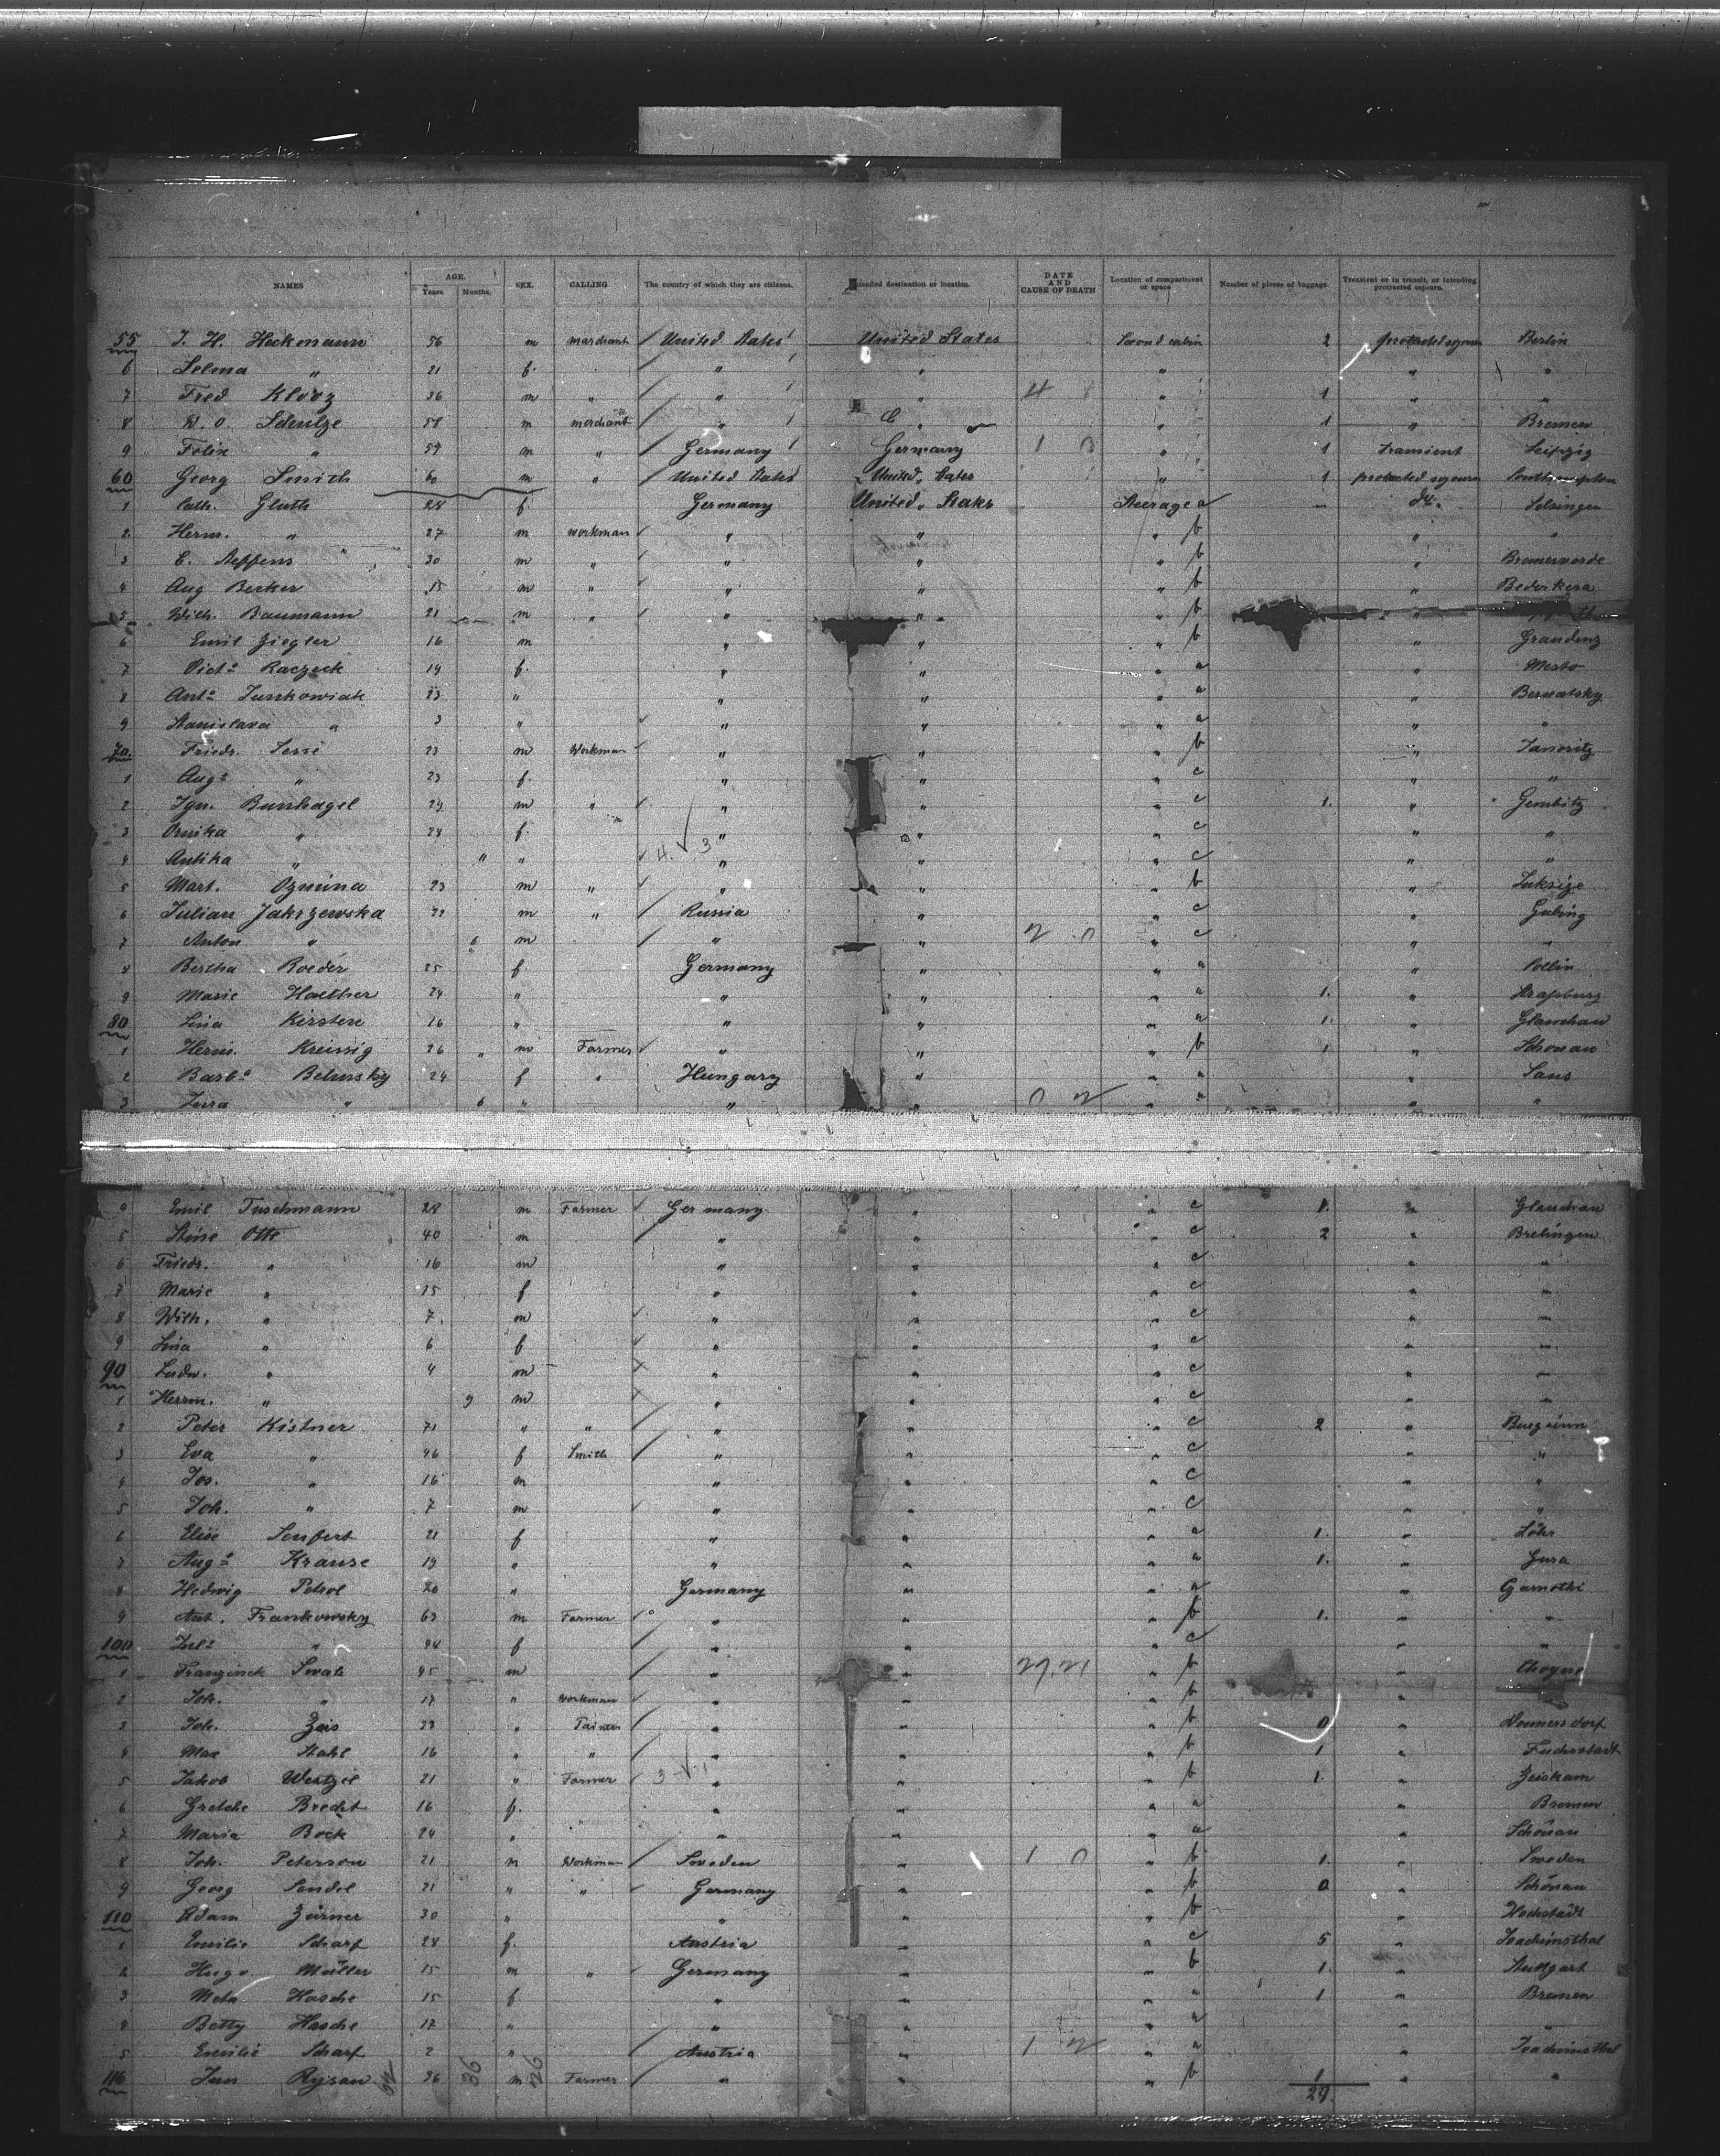 NAMES AGE. Years. Months. SEX. CALLING The country of which they are citizens. Intended destination or location. DATE AND CAUSE OF DEATH Location of compartment or space Number of pieces of baggage. Transient or in transit, or intending protracted sojourn.
55 J. H. Heckmann 56 m merchant United States United States Second cabin 2 protracted sojourn Berlin
6 Selma " 21 f. " " " " "
7 Fred 36 m " " " 4 8 " 1 " "
8 W. O. Schulze 58 m merchant " " " 1 " Bremen
9 Felix " 54 m " Germany Germany 1 0 " 1 transient Leipzig
60 Georg Smith 60 m " United States United States " 1 protracted sojourn Southampton
1 Cath. Gluth 28 f. Germany United States Steerage a do. Selsingen
2 Herm. " 27 m workman " " " b " "
3 C. Steffens 30 m " " " " b " Bremervorde
4 Aug Becker 15 m " " " " b " Bederkera
5 Wilh. Baumann 21 m " " " " b "
6 Emil Ziegler 16 m " " " b " Graudenz
7 Victa Raczeck 19 f. " " " a " Mesto
8 Anta Junkowiak 23 " " " " a " Bernatsky
9 Stanislava " 3 " " " " a " "
70. Friedr. Lesse 23 m Workman " " " b " Janoritz
1 Auga " 23 f. " " " c " "
2 Ign. Burrhagel 24 m " " " " c 1. " Gembitz
3 " 24 f. " " " c " "
4 Antika " " " 4. V 3 " " " c " "
5 Mart. Ozmina 23 m " " " " b "
6 Julian Jakrzewska 22 m " Russia " " c "
7 Anton " 6 m " " 2 0 " c " "
8 Bertha Roeder 25 f Germany " " a "
9 Marie Haether 24 " " " " a 1. " Strassburg
80 Lina Kirsten 16 " " " " a 1. " Glauchau
1 Herm. Kreissig 26 " m Farmer " " " b 1 " Schonau
2 Barba Belinsky 24 f " Hungary " " a " Sans
3 " 6 " " " 0 2 " a " "
4 Emil Tuschmann 28 m Farmer Germany " " c 1. " Glauchau
5 Stine Otte 40 m " " " c 2 " Brelingen
6 Friedr. " 16 m " " " c " "
7 Marie " 15 f " " " c " "
8 Wilh. " 7. m " " " c " "
9 Lina " 6 f " " " c " "
90 Ludw. " 4 m " " " c " "
1 Herrm. " 9 m " " " c " "
2 Peter Kistner 71 " " " " " c 2 " Burgsinn
3 Eva " 46 f Smith " " " c " "
4 Jos. " 16 m " " " c " "
5 Joh. " 7 m " " " c " "
6 Elise Senfert 21 f " " " a 1. " Löhr
7 Auga Krause 19 " " " " a 1. " Gura
8 Hedwig 20 " Germany " " a " Garnotki
9 Ant. Frankowsky 63 m Farmer " " " b 1. " "
100 Jula " 44 f " " " c " "
1 Franzisck 45 m " 27.21 " b "
2 Joh. " 17 " Workman " " " b "
3 Joh. Zeis 23 " " " " b 0 "
4 Max Stahl 16 " " " " " b 1 "
5 Jakob Wentzel 21 " Farmer 3 V 1 " " " b 1. " Zeiskam
6 Gretche Brecht 16 f. " " " a " Bremen
7 Maria Bock 24 " " " " a " Schönau
8 Joh. Peterson 21 m Workman Sweden " 1 0 " b 1. " Sweden
9 Georg Sendel 21 " " Germany " " b 0 " Schönau
110 Adam Zürner 30 " " " " b " Hochstadt
1 Emilie Scharf 28 f. Austria " " c 5 " Joachimsthal
2 Hugo Müller 15 m " Germany " " b 1. " Stuttgart
3 Meta Hasche 15 f " " " a 1 " Bremen
4 Betty Hasche 17 " " " " a " "
5 Emilie Scharf 2 " Austria " 1 2 " a " Joachimsthal
116 Jan Rysan 36 m Farmer " " " b 1 " "
36 26 29.